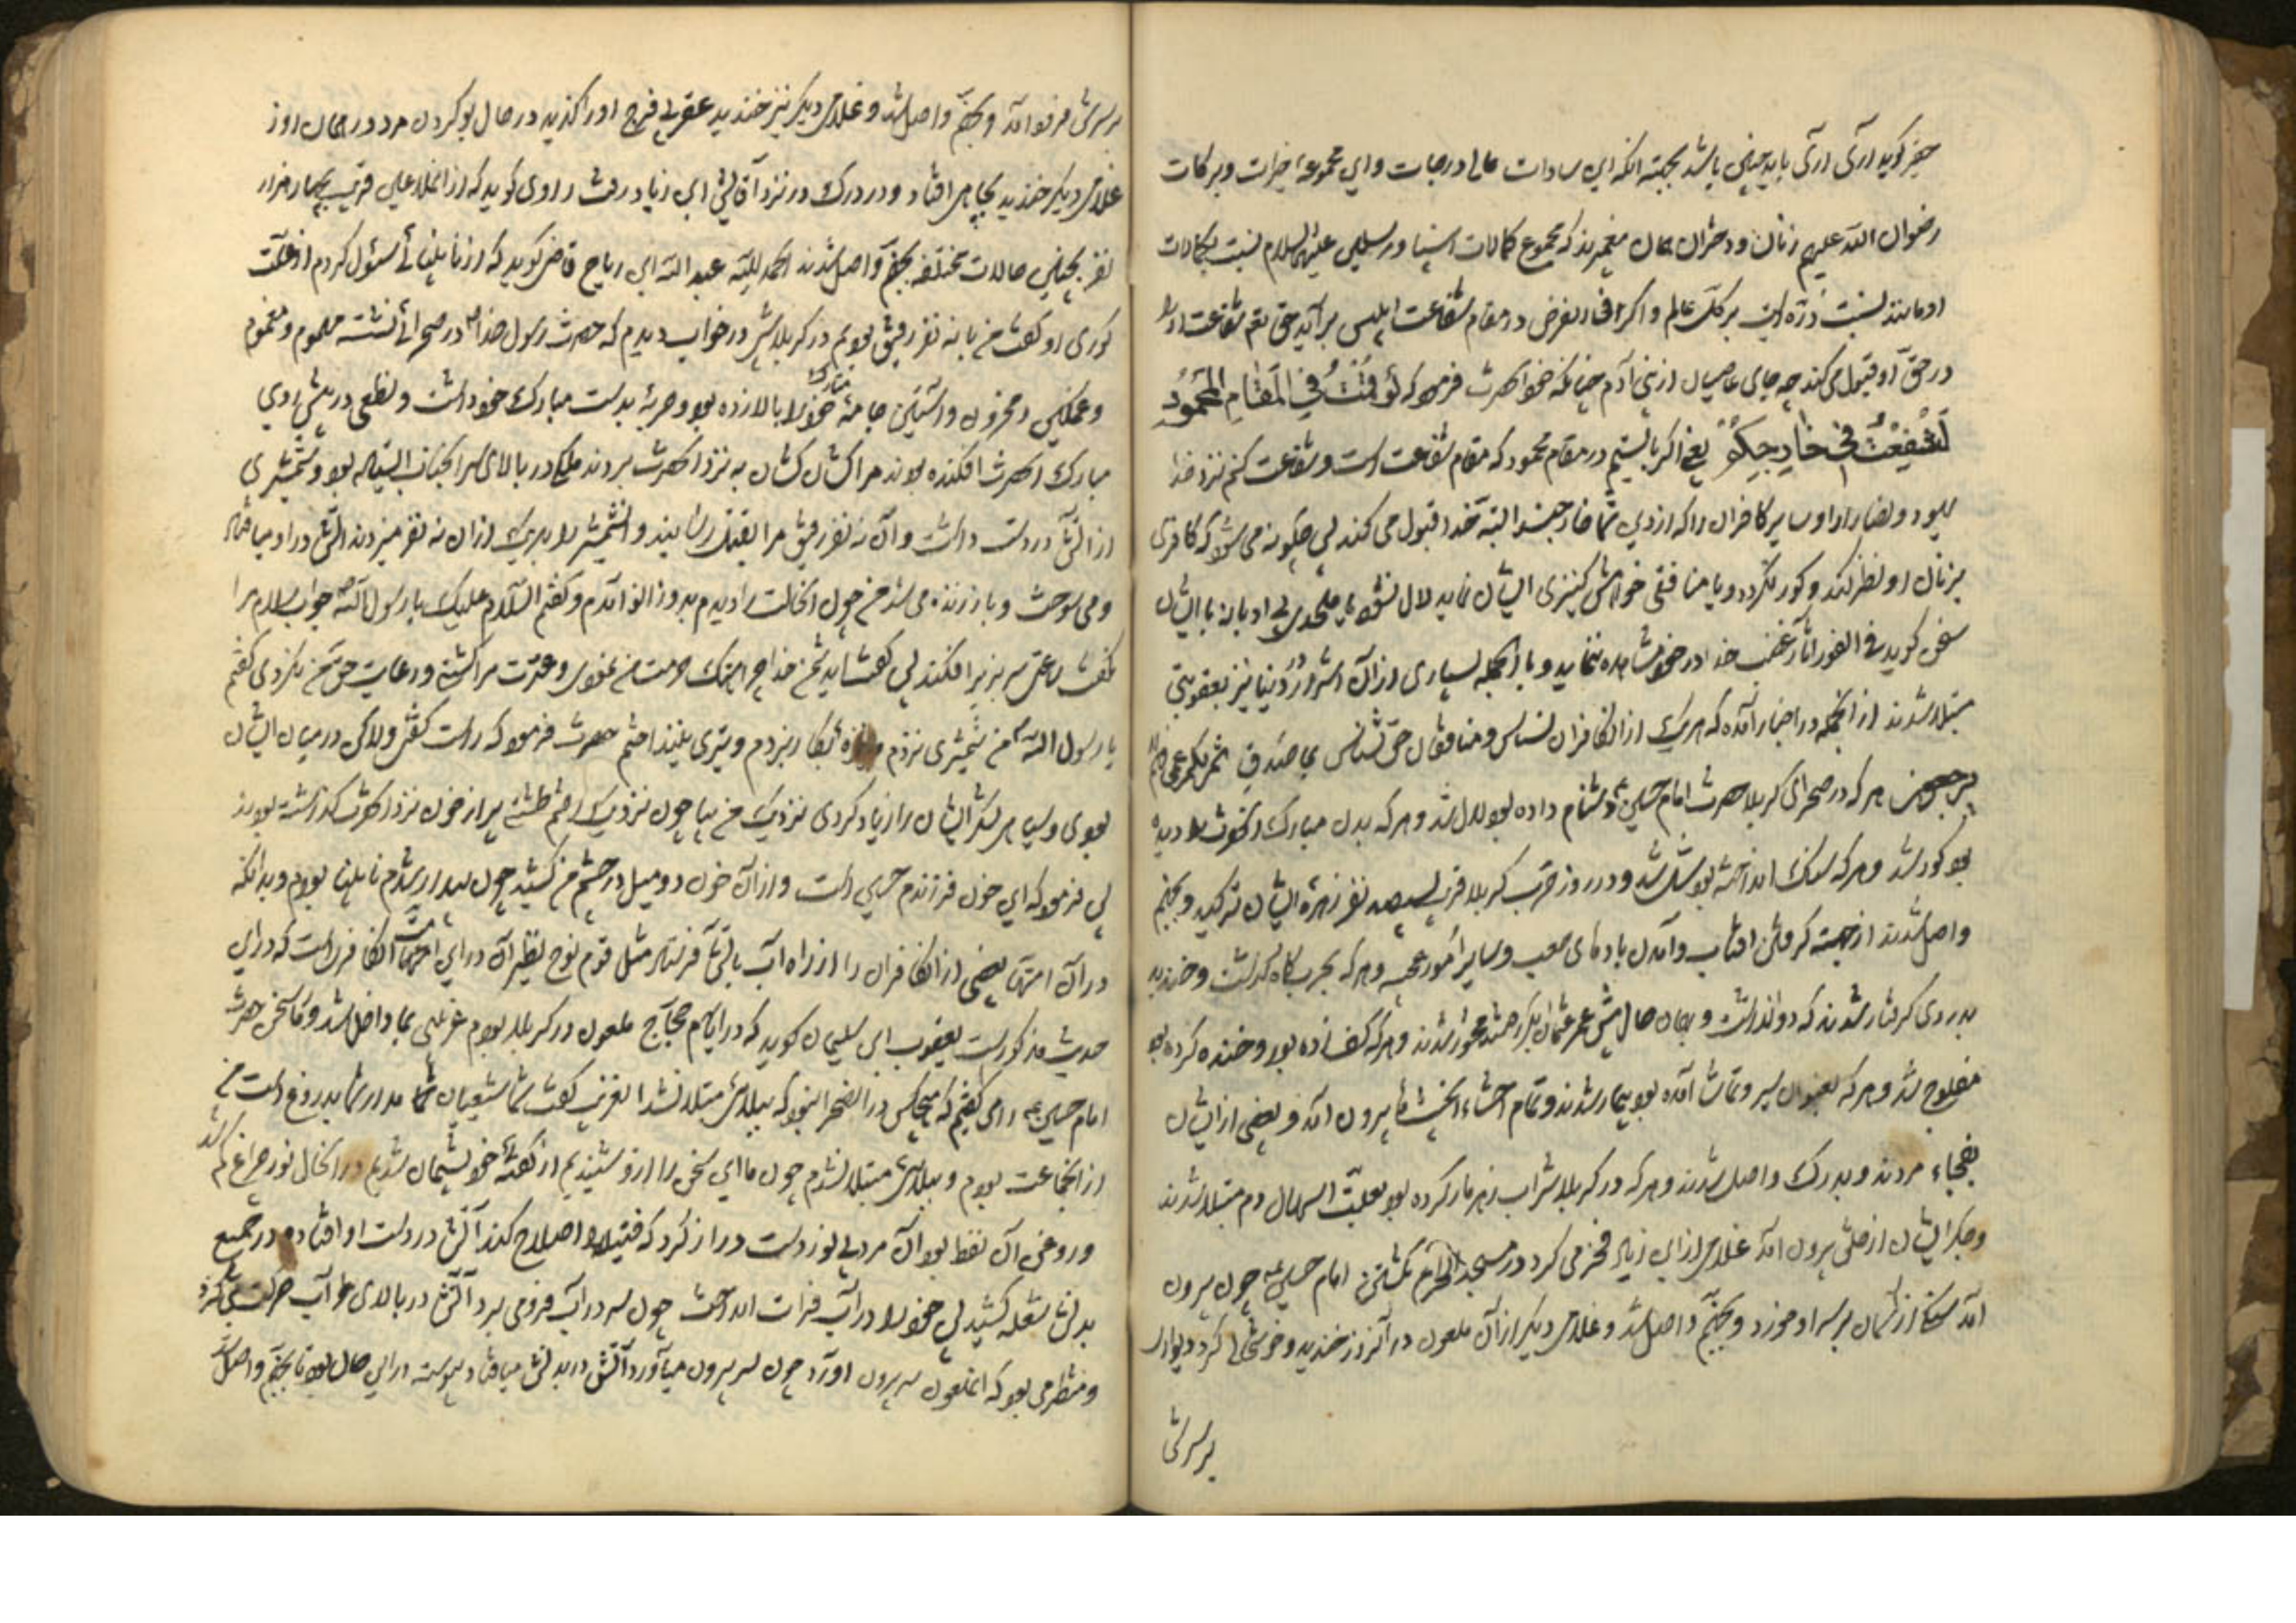 حقیر کوید آری آری باید چنین باشد بجهته انکه این سادات عالی درجات و این مجموعهٔ خیرات و برکات
رضوان الله علیهم زنان و دختران همان پیغمبرند که مجموع کمالات انبیا و مرسلین علیهم السلام نسبت بکمالات
او مانند نسبت ذرّه است بر کلّ عالم و اکر بفرض در مقام شفاعت ابلیس برآید حق تعم شفاعت او را
در حقّ او قبول می کند چه جای عاصیان از بنی آدم چنانکه خود آنحضرت فرموده که لَو قُمْتُ فِی المَقٰامِ المَحْمُود
لَشَفِعْتُ فی یعنی اکر بایستیم در مقام محمود که مقام شفاعت است و شفاعت کنم نزد خدا
یهود و نصارا و سایر کافران را که از دین شما خارجند البته خدا قبول می کند پس چکونه می شود که کافری
بزنان او نظر کند و کور نکردد و یا منافقی خواهش کنیزی ایشان نماید لال نشود یا ملحدی بی ادبانه با ایشان
سخن کوید فی الفور آثار غضب خدا در خود مشاهده ننماید و بالجمله بسیاری از آن اشرار در دنیا نیز بعقوبتی
مبتلا شدند از آنجمله در اخبار آمده که هر یک از آن کافران نسناس و منافقان حق نشناس بی صدق صُمٌ بُکمٌ عُمیٌ فهم لا
یرجعون هر که در صحرای کربلا حضرت امام حسین ع دشنام داده بود لال شد و هر که بدن مبارک آنحضرت را دیده
بود کور شد و هر که سنک انداخته بود شل شد و در روز حرب کربلا قریب بسیصد نفر زهرهٔ ایشان ترکید و بجهنم
واصل شدند از جهته کرفتن افتاب و آمدن بادهای صعب و سایر امور عجیبه و هر که بحربکاه کذشت و خندید
بدردی کرفتار شدند که دوا نداشت و همان حال مثل عمر عثمان ابکر شدند و هر که کف زده بود و خنده کرده بود
مفلوج شد و هر که بعنوان سیر و تماشا آمده بود بیمار شدند و تمام احشاء بیرون آمد و بعضی از ایشان
بفجاء مردند و بدرک واصل شدند و هر که در کربلا شراب زهرمار کرده بود بعلّت اسهال دم مبتلا شدند
و جکر ایشان از حلق بیرون آمد غلامی از ابن زیاد فخر می کرد در مسجد الحرام بکشتن امام حسین ع چون بیرون
آمد سنکی از آسمان بر سر او خورد و بجهنّم واصل شد و غلامی دیکر از آن ملعون در آنروز خندید و خوشحالی کرد دیوار
بر سرش
بر سرش فرود آمد و بجهنّم واصل شد و غلامی دیکر نیز خندید عقربی فرج او را کزید در حال بو کردن مرد در همان روز
غلامی دیکر خندید بچاهی افتاد و در درک در نزد آقایش ابن زیاد رفت راوی کوید که از غلامان قریب بچهار هزار
نفر بچنین حالات مختلفه بجهنّم واصل شدند الحمد للّه عبد الله ابن ریاح قاضی کوید که از نابینائی سئوال کردم از علّت
کوری او کفت من با نه نفر رفیق بودیم در کربلا شبی در خواب دیدم که حضرت رسول خدا ص در صحرائی نشسته مهموم و مغموم
و غمکین و محزون و آستین جامهٔ مبارک خود را بالا زده بود و حربهٔ بدست مبارک خود داشت و نطعی در پیش روی
مبارک آنحضرت افکنده بودند مرا کشان کشان به نزد آنحضرت بردند ملکی در بالای سر آنجناب ایستاده بود و شمشیری
از آتش در دست داشت و آن نه نفر رفیق مرا بقتل رسانیدند و آن شمشیر را بهر یک از آن نه نفر میزدند آتش در او میافتاد
و می سوخت و باز زنده می شد من چون آنحالت را دیدم بدو زانو آمدم و کفتم السّلام علیک یا رسول الله جواب سلام مرا
نکفت ساعتی سر بزیر افکند پس کفت ای دشمن خدا چرا هتک حرمت من نمودی و عترت مرا کشتی و رعایت حق من نکردی کفتم
یا رسول الله من شمشیری نزدم و نیزهٔ بکار نبردم و تیری نینداختم حضرت فرمود که راست کفتی ولکن در میان ایشان
بودی و سیاهی لشکر ایشان را زیاد کردی نزدیک من بیا چون نزدیک رفتم طشتی پر از خون نزد آنحضرت کذاشته بودند
پس فرمود که این خون فرزندم حسین است و از آن خون دو میل در چشم من کشید چون بیدار شدم نابینا بودم و بدانکه
در آن امتها بعضی از آن کافران را از راه آب بآتش آفرنتار مثل قوم نوح نظیر آن در این امت آن کافر است که در این
حدیث مذکور است یعقوب ابن سلیمان کوید که در ایّام حجّاج ملعون در کربلا بودم غریبی بما داخل شد و ما سخن حضرت
امام حسین ع را می کفتیم که هیچکس در آن صحرا نبود که ببلائی مبتلا نشد آن غریب کفت شما شیعیان مدار شما بدروغ است من
از آنجماعت بودم و ببلائی مبتلا نشدم چون ما این سخن را از او شنیدیم از کفتهٔ خود پشیمان شدیم در آنحال نور چراغ کم شد
و روغن آن نفط بود آن مرد بی نور دست دراز کرد که فتیله را اصلاح کند آتش در دست او افتاده در جمیع
بدنش شعله کشید پس خود را در آب فرات انداخت چون سر در آب فرو می برد آتش در بالای آب حرکت می کرد
و منتظر می بود که آنملعون سر بیرون آورد چون سر بیرون میآورد آتش در بدنش میافتاد پیوسته در این حال بود تا بجهنّم واصل شد